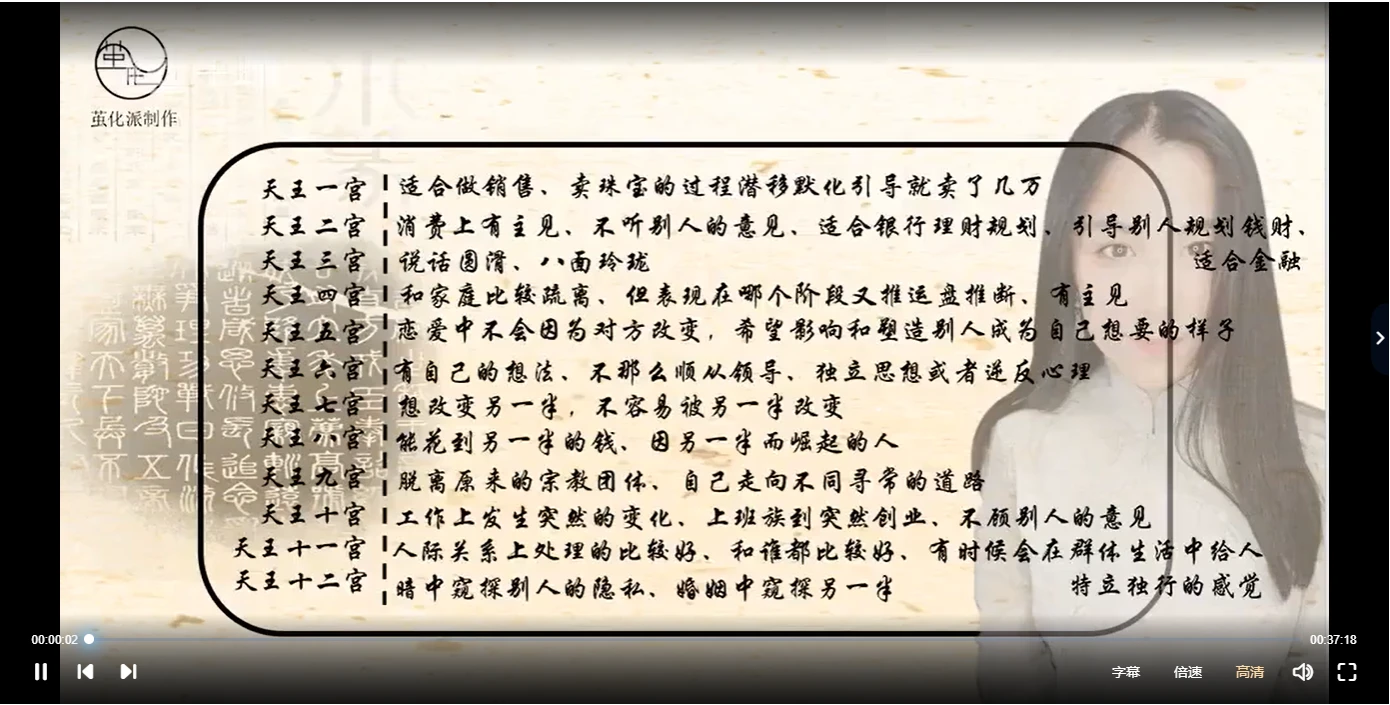 茧化
茧化派制作
天王一宫 适合做销售、卖珠宝的过程潜移默化引导就卖了几万
天王二宫 消费上有主见、不听别人的意见、适合银行理财规划、引导别人规划钱财、
适合金融
天王三宫 说话圆滑、八面玲珑
天王四宫 和家庭比较疏离、但表现在哪个阶段又推运盘推断、有主见
天王五宫 恋爱中不会因为对方改变，希望影响和塑造别人成为自己想要的样子
天王六宫 有自己的想法、不那么顺从领导、独立思想或者逆反心理
天王七宫 想改变另一半，不容易被另一半改变
天王八宫 能花到另一半的钱、因另一半而崛起的人
天王九宫 脱离原来的宗教团体、自己走向不同寻常的道路
天王十宫 工作上发生突然的变化、上班族到突然创业、不顾别人的意见
天王十一宫 人际关系上处理的比较好、和谁都比较好、有时候会在群体生活中给人
特立独行的感觉
天王十二宫 暗中窥探别人的隐私、婚姻中窥探另一半
00:00:02
00:37:18
字幕 倍速 高清